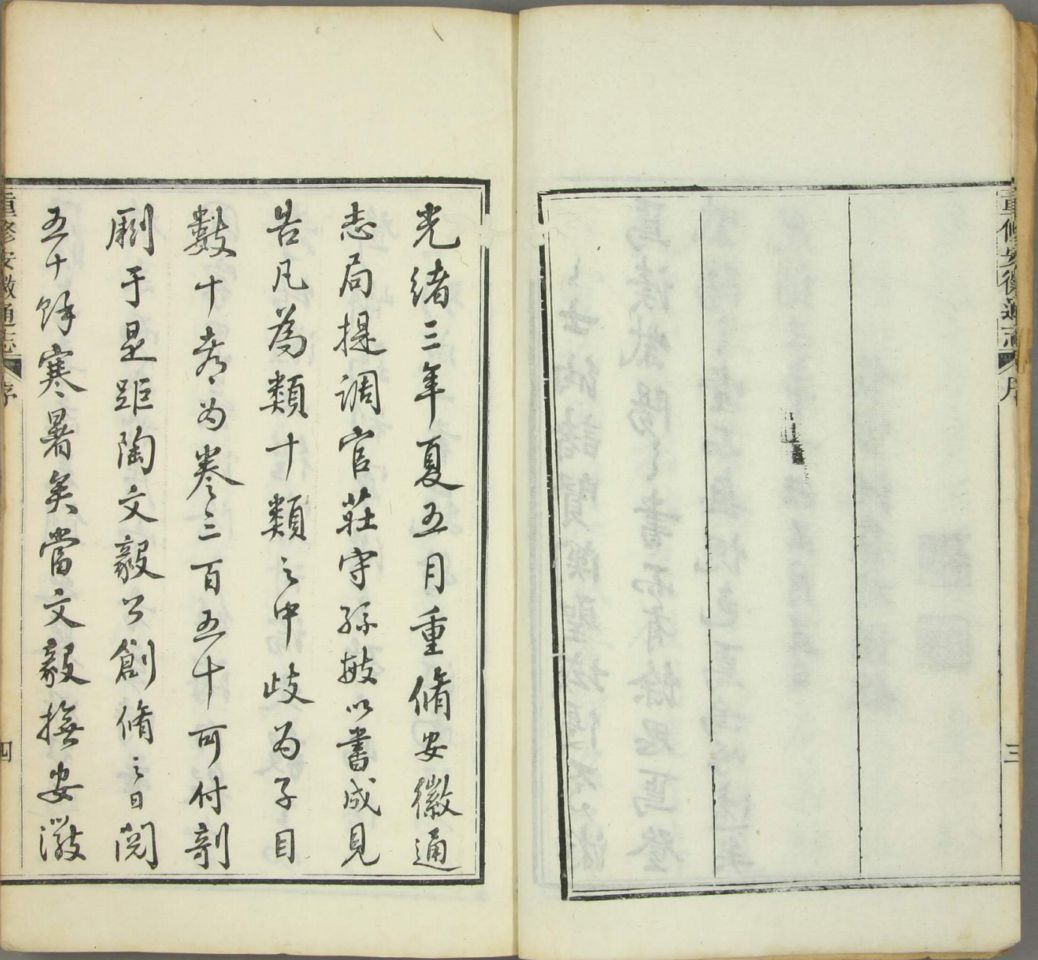 重修安徽通志 序
三
光緒三年夏五月重脩安徽通
志局提調官莊守孫敏以書成見
告凡為類十類之中歧為子目
數十都為卷三百五十可付剞
劂于是距陶文毅公創脩之日閲
五十餘寒暑矣當文毅撫安徽
重修安徽通志 序
四